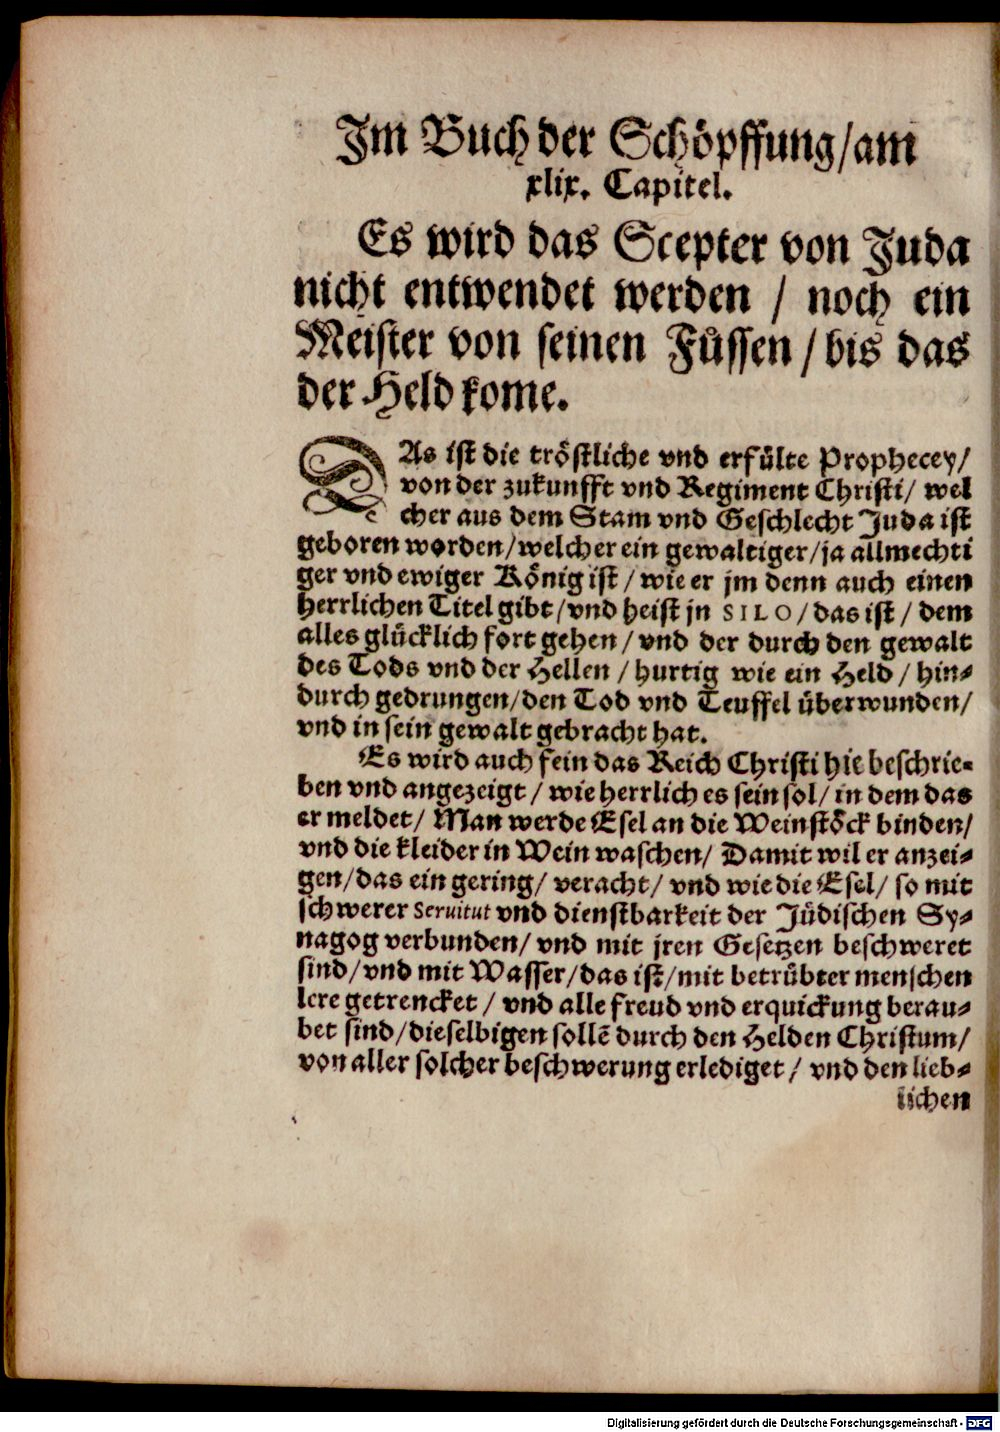 Im Buch der Schöpffung/am
xlix. Capitel.
Es wird das Scepter von Juda
nicht entwendet werden / noch ein
Meister von seinen Füssen / bis das
der Held kome.
DAs ist die tröstliche vnd erfülte Prophecey/
von der zukunfft vnd Regiment Christi/ wel
cher aus dem Stam vnd Geschlecht Juda ist
geboren worden/welcher ein gewaltiger/ja allmechti
ger vnd ewiger König ist / wie er jm denn auch einen
herrlichen Titel gibt/vnd heist jn SILO/das ist / dem
alles glücklich fort gehen / vnd der durch den gewalt
des Tods vnd der Hellen / hurtig wie ein Held / hin-
durch gedrungen/den Tod vnd Teuffel überwunden/
vnd in sein gewalt gebracht hat.
Es wird auch fein das Reich Christi hie beschrie-
ben vnd angezeigt / wie herrlich es sein sol/ in dem das
er meldet/ Man werde Esel an die Weinstöck binden/
vnd die kleider in Wein waschen/ Damit wil er anzei-
gen/das ein gering/ veracht/ vnd wie die Esel/ so mit
schwerer Seruitut vnd dienstbarkeit der Jüdischen Sy-
nagog verbunden/ vnd mit jren Gesetzen beschweret
sind/vnd mit Wasser/das ist/mit betrübter menschen
lere getrencket / vnd alle freud vnd erquickung berau-
bet sind/dieselbigen sollē durch den Helden Christum/
von aller solcher beschwerung erlediget / vnd den lieb-
lichen
Digitalisierung gefördert durch die Deutsche Forschungsgemeinschaft - DFG